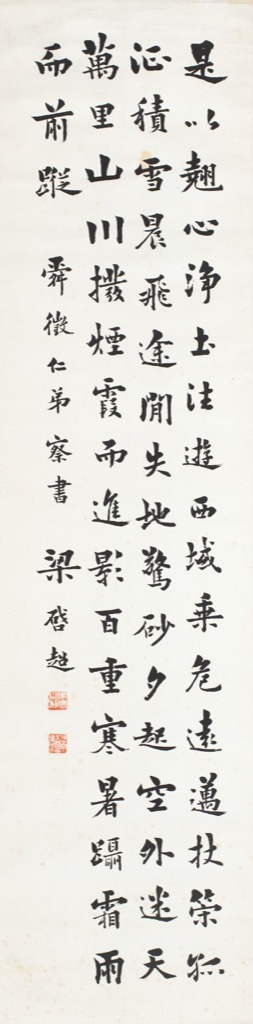 是以翹心净土法遊西域乗危遠邁杖策孤
征積雪晨飛途間失地驚砂夕起空外迷天
萬里山川撥煙霞而進影百重寒暑躡霜雨
而前蹤
舜徵仁弟察書 梁啓超